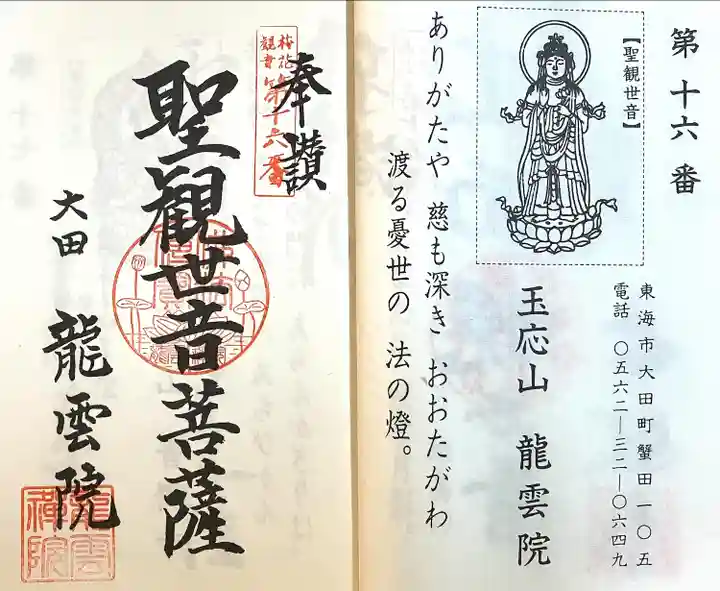 第十六番
【聖観世音】
東海市大田町蟹田一〇五
電話 〇五六二―三二―〇六四九
玉応山 龍雲院
ありがたや 慈も深き おおたがわ
渡る憂世の 法の燈。
奉讃
梅花観音
第十六番
聖観世音菩薩
大田 龍雲院
龍雲禅院